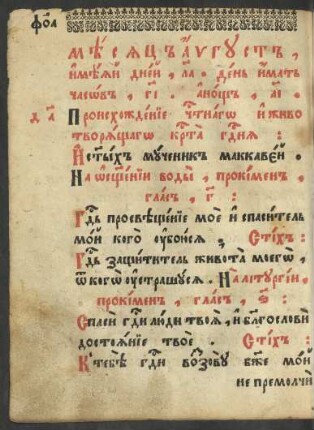 фо҃а
МѢСЯЦЪ АѴГꙊСТЪ ,
имѣѧй дней , л҃а . день имать
часѡвъ , г҃і . а нощь , а҃і .
д҃ а҃ Происхожденїе чⷭ҇тнагѡ и живо
творѧщагѡ крⷭ҇та гдⷭ҇нѧ :
И ст҃ыхъ мꙋченикъ маккавей .
На ѡсщ҃енїи воды , прокіменъ ,
гласъ , г҃ :
Гдⷭ҇ь просвѣщенїе мое и спаситель
мой кого ꙋбоюсѧ , Стїхъ :
Гдⷭ҇ь защититель живота моегѡ ,
ѿ когѡ ꙋстрашꙋсѧ . На лїтꙋргїи ,
прокіменъ , гласъ , ѕ҃ :
Спаси гдⷭ҇и люди твоѧ , и благослови
достоѧнїе твое . Стїхъ :
К тебѣ гдⷭ҇и воззовꙋ бж҃е мой
не премолчи